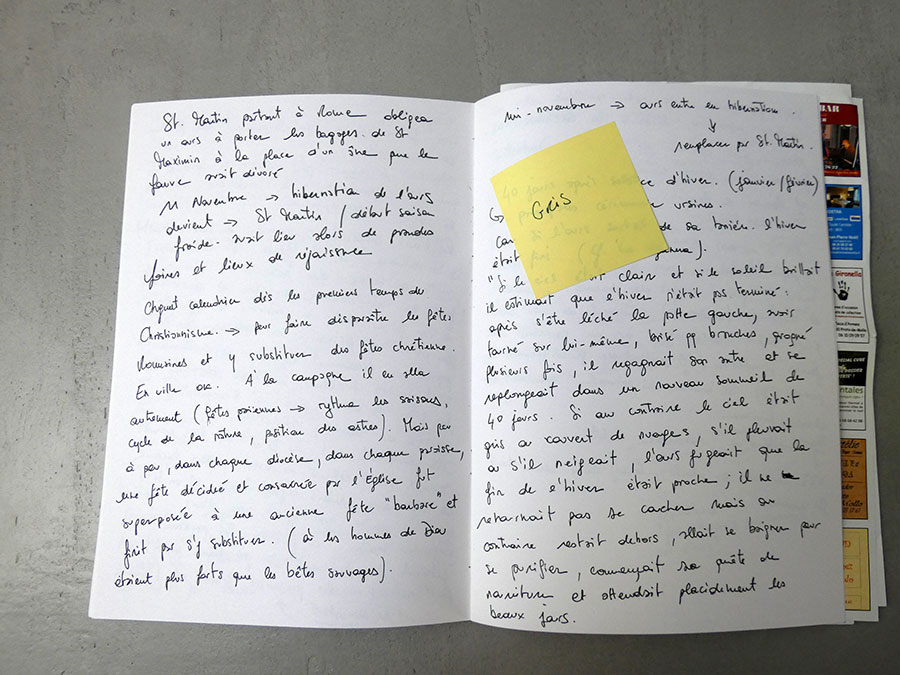 St. Martin partant à Rome obligea
un ours à porter les bagages de St
Maximin à la place d'un âne que le
fauve avait dévoré
11 Novembre → hibernation de l'ours
devient → St Martin / début saison
froide. avait lieu alors de grandes
foires et lieux de réjouissance
calendrier dès les premiers temps du
Christianisme. → pour faire disparaître les fêtes
Romaines et y substituer des fêtes chrétienne.
En ville ok. À la campagne il en alla
autrement (fêtes païennes → rythme les saisons,
cycle de la nature, position des astres). Mais peu
à peu, dans chaque diocèse, dans chaque paroisse,
une fête décidée et consacrée par l'Église fut
superposée à une ancienne fête "barbare" et
finit par s'y substituer. (à les hommes de Dieu
étaient plus forts que les bêtes sauvages).
mi-novembre → ours entre en hibernation.
↓
remplacer par St. Martin.
40 jours après
d'hiver. (janvier/février)
GRIS
ursines.
de sa tanière. l'hiver
était
"Si le était clair et si le soleil brillait
il estimait que l'hiver n'était pas terminé:
après s'être léché la patte gauche, avoir
tourné sur lui-même, brisé qq branches, grogné
plusieurs fois, il regagnait son antre et se
replongeait dans un nouveau sommeil de
40 jours. Si au contraire le ciel était
gris ou couvert de nuages, s'il pleuvait
ou s'il neigeait, l'ours jugeait que la
fin de l'hiver était proche; il ne
retournait pas se cacher mais au
contraire restait dehors, allait se baigner pour
se purifier, commençait sa quête de
nourriture et attendait placidement les
beaux jours.
BAR
Gironella